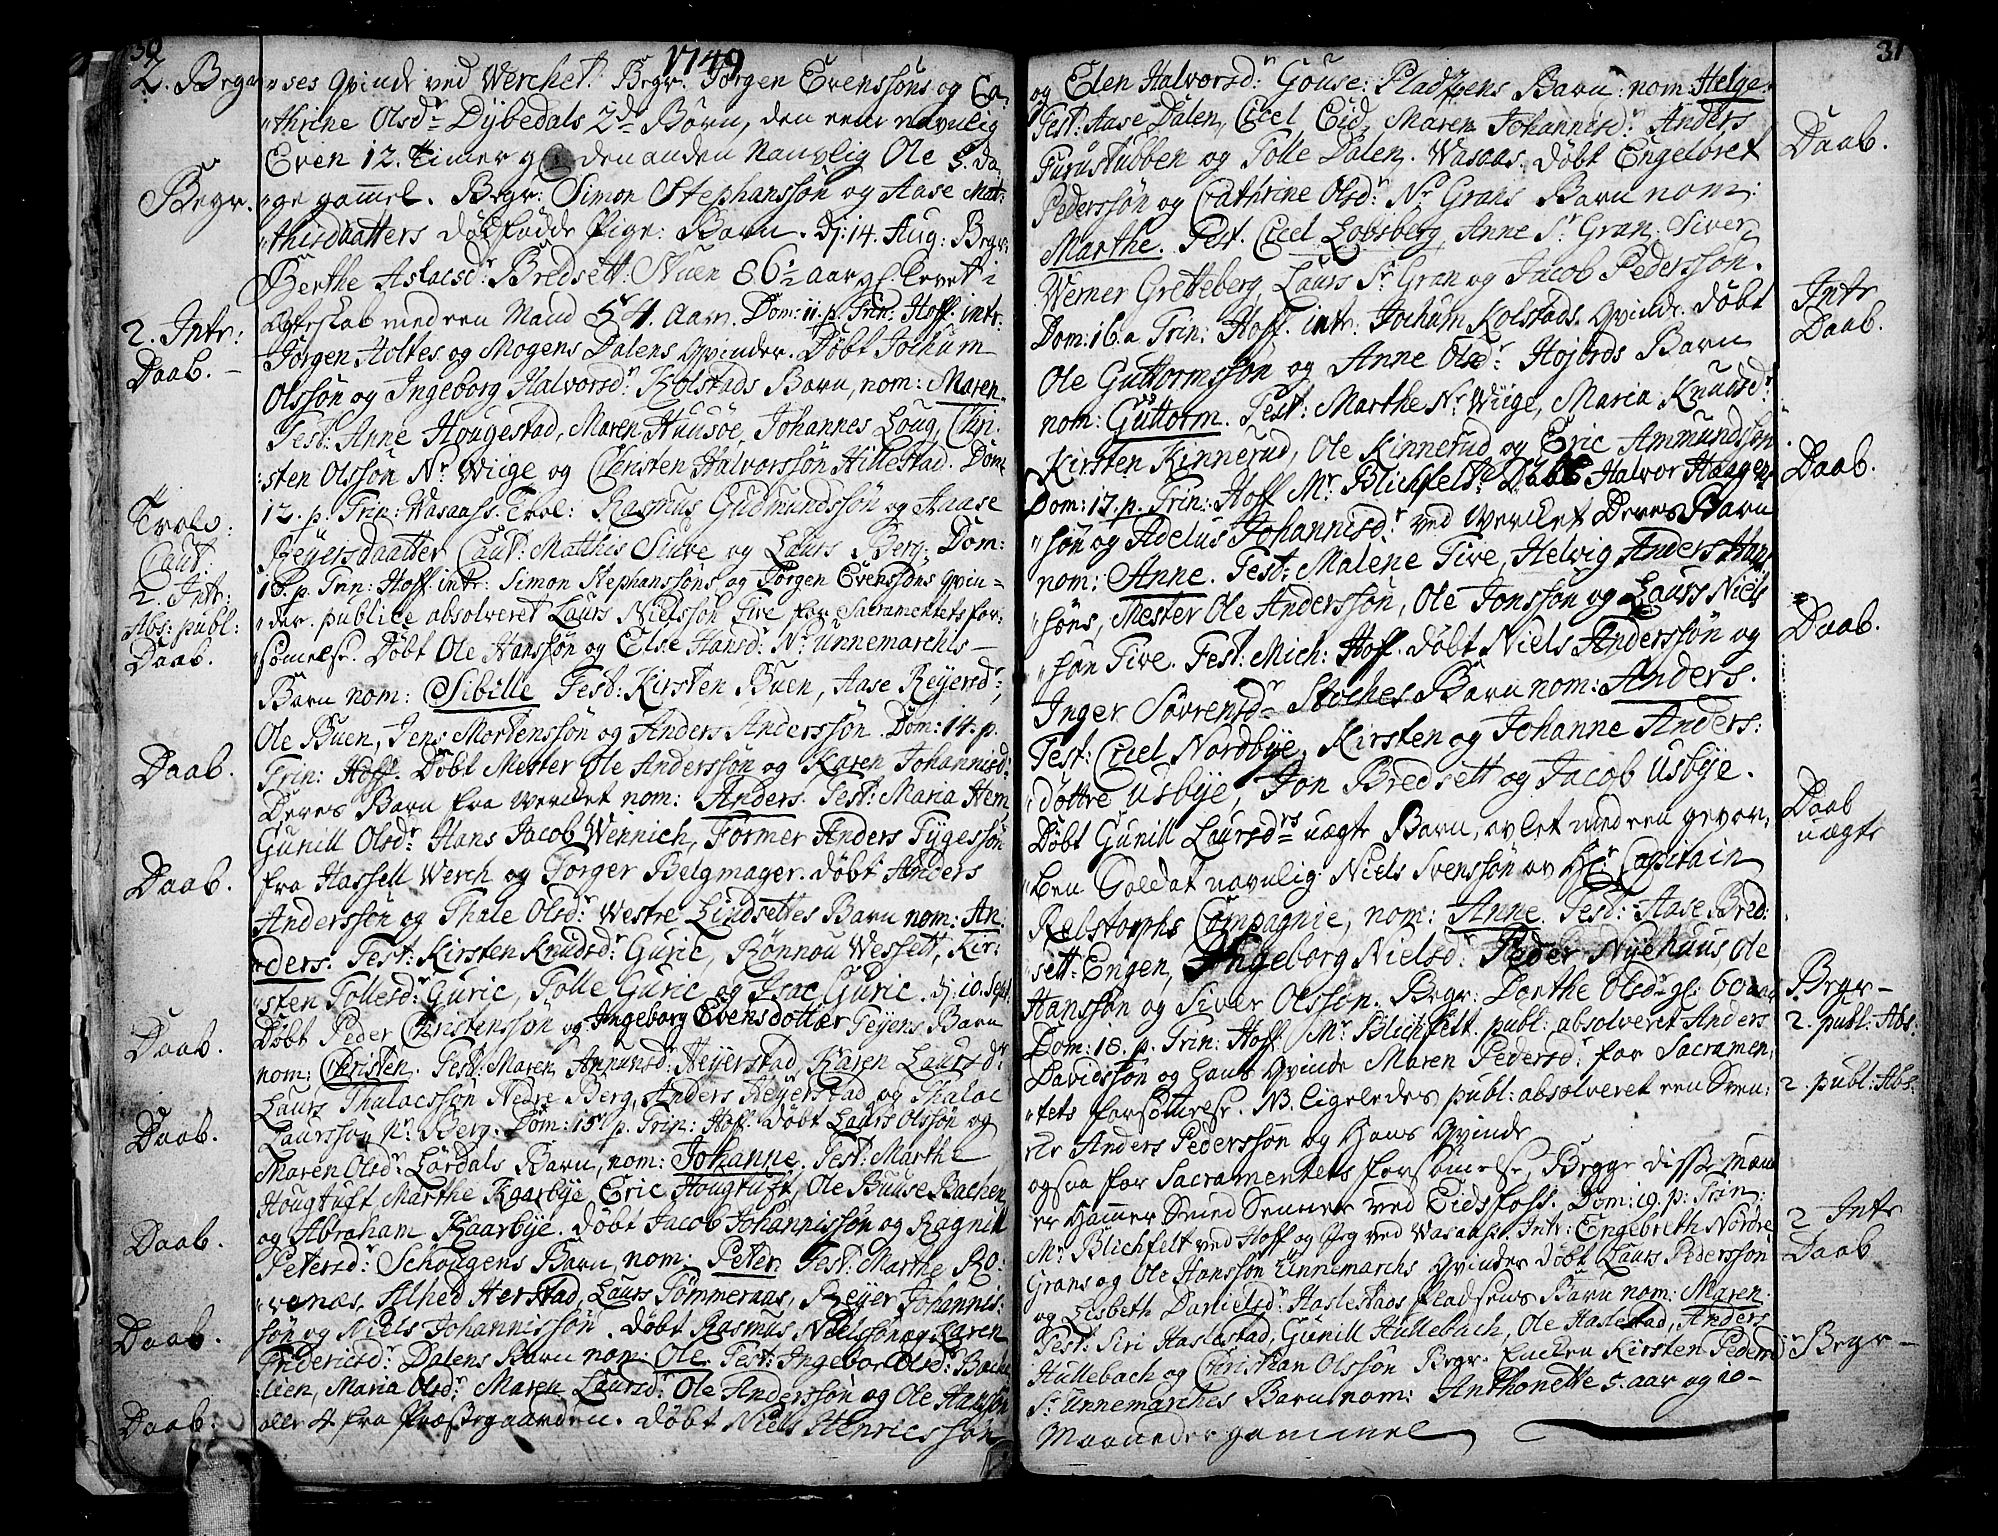 30
1749
2. Begr
ses Qvinde ved Werchet. Begr. Jørgen Evenssøns og Ca-
thrine Olsdr Dybedals 2de Børn, den eene navnlig
Even 12. Timer den anden Navnlig Ole 5. Da-
Begr.
ge gammel. Begr: Simon Stephanssøn og Aase Mat-
thisdaatters dødfødde Pige-Barn. Dj: 14. Aug: Begr:
Berthe Aslacsdr Bredsett: Skuen 86½ aar gl. levet i
Ægteskab med een Mand 54. Aar. Dom: 11. p. Trin: Hoff. intr:
2. Intr:
Jørgen Holtes og Mogens Dalens Qvinder. Døbt Jochum
Daab.
Olssøn og Ingeborg Halvorsdr Kolstads Barn, nom: Maren.
Test: Anne Hougestad, Maren Huusøe, Johannes Loug, Chri-
sten Olssøn Nr Wiige og Christen Halvorssøn Hillestad. Dom:
12. p. Trin: Wasaas. Trol: Rasmus Gudmundssøn og Aase
Trolo:
Reyersdaatter Caut: Matthis Siuve og Laurs Berg. Dom:
Caut:
13. p. Trin: Hoff. intr: Simon Stephanssøns og Jørgen Evenssøns Qvin-
2. Intr:
der. publice absolveret Laurs Nielssøn Tive for Sacramentets for-
Abs: publ:
sømelse. Døbt Ole Hanssøn og Else Hansdr Nr Unnemarchs
Daab.
Barn nom: Sibille Test: Kirsten Buen, Aase Reyersdr,
Ole Buen, Jens Mortenssøn og Anders Anderssøn. Dom: 14. p.
Trin: Hoff. Døbt Mester Ole Anderssøn og Karen Johannisd:
Daab.
Deres Barn fra Verchet nom: Anders. Test: Maria Hem
Gunill Olsdr Hans Jacob Wennich, Former Anders Tygessøn
fra Hassell Werch og Torger Belgmager. Døbt Anders
Daab.
Anderssøn og Thale Olsdr Westre Lindsettes Barn nom: An-
ders. Test: Kirsten Knudsdr Guric, Rønnou Wessett, Kir-
sten Tollesdr Guric, Tolle Guric og Isac Guric. Dj. 10. Sept.
Døbt Peder Christenssøn og Ingeborg Evensdotter Teyens Barn
Daab.
nom: Christen. Test: Maren Ammunsdr Heyerstad, Karen Laursdr
Laurs Thalacssøn Nedre Berg, Anders Heyerstad og Thalac
Laurssøn Nr Berg. Dom: 15. p. Trin: Hoff. Døbt Laurs Olssøn og
Daab.
Maren Olsdr Lørdals Barn, nom: Johanne. Test: Marthe
Hougtuft Marthe Kaarbye, Eric Hougtuft, Ole Buuse Bachen
og Abraham Kaarbye. Døbt Jacob Johannissøn og Ragnil
Daab.
Petersdr Schougens Barn, nom: Peter. Test: Marthe Ro-
venæs, Alhed Herstad, Laurs Tømmeraas, Reyer Johannis-
søn og Niels Johannissøn. Døbt Rasmus Nielssøn og Karen
Daab.
Fridericsdr Dalens Barn nom: Ole. Test: Ingebor Olsdr Bache-
lien, Maria Olsdr Maren Laursdr Ole Anderssøn og Ole Hanssøn
alle 4 fra Præstegaarden. Døbt Niels Henricssøn
Daab:
31
og Elen Halvorsdr Gouse-Pladsens Barn: nom: Helge.
Test: Aase Dalen, Cicel Eid, Maren Johannisdr Anders
Furustubben og Tolle Dalen. Wasaas. Døbt Engebret
Daab.
Pederssøn og Cathrine Olsdr Nr Grans Barn nom:
Marthe. Test. Cicel Lobsberg, Anne Sr Gran, Siver
Werner Gretteberg, Laurs Sr Gran og Jacob Pederssøn.
Dom: 16. a Trin: Hoff. intr. Jochum Kolstads Qvinde. Døbt
Intr
Daab.
Ole Guttormssøn og Anne Olsdr Hojords Barn
nom: Guttorm. Test: Marthe Nr Wiige, Maria Knudsdr
Kirsten Kinnerud, Ole Kinnerud og Eric Ammundssøn
Dom: 17. p. Trin: Hoff Mr Blichfelt. Døbt Halvor Haagen-
Daab.
søn og Adelus Johannisdr ved Verchet Deres Barn
nom: Anne. Test: Malene Tive, Helvig Anders Han-
søns, Mester Ole Anderssøn, Ole Jonssøn og Laurs Niels
søn Tive. Fest: Mich: Hoff. Døbt Niels Anderssøn og
Daab.
Inger Sørensdr Stoches Barn nom: Anders.
Test: Cicel Nordbye, Kirsten og Johanne Anders:
døttre Usbye, Jon Bredsett og Jacob Usbye.
Døbt Gunill Laursdrs uægte Barn, avlet med een gevor-
Daab
uægte
ben Soldat navnlig Niels Svenssøn av Hr Capitain
Relstorphs Compagnie, nom: Anne. Test: Aase Bred-
sett-Engen, Ingeborg Nielsdr Peder Nyehuus, Ole
Hanssøn og Siver Olssøn. Begr: Dorthe Olsdr gl: 60 aar
Begr
Dom: 18. p. Trin: Hoff Mr Blichfelt. publ: absolveret Anders
2. publ: Abs:
Davidssøn og hans Qvinde Maren Pedersdr for Sacramen-
tets forsømelse. NB. ligeledes publ: absolveret een Sven-
2. publ: Abs.
ske Anders Pederssøn og Hans Qvinde
ogsaa for Sacramentets forsømelse, Begge disse Mænd
er Hammer Smed Svenner ved Eidsfoss. Dom: 19. p: Trin:
Mr Blichfelt ved Hoff og Jeg ved Wasaas. Intr: Engebreth Nordre
2 Intr
Grans og Ole Hanssøn Unnemarchs Qvinder Døbt Laurs Pederssøn
Daab
og Lisbeth Danielsdr Haslestads Pladsens Barn nom: Maren.
Test: Siri Haslestad, Gunill Hullebach, Ole Haslestad, Anders
Hullebach og Christian Olssøn Begr. Encken Kirsten Pedersdr
Begr
Sr Unnemarches Barn nom: Anthonette 5. aar og 10
Maaneder gammel